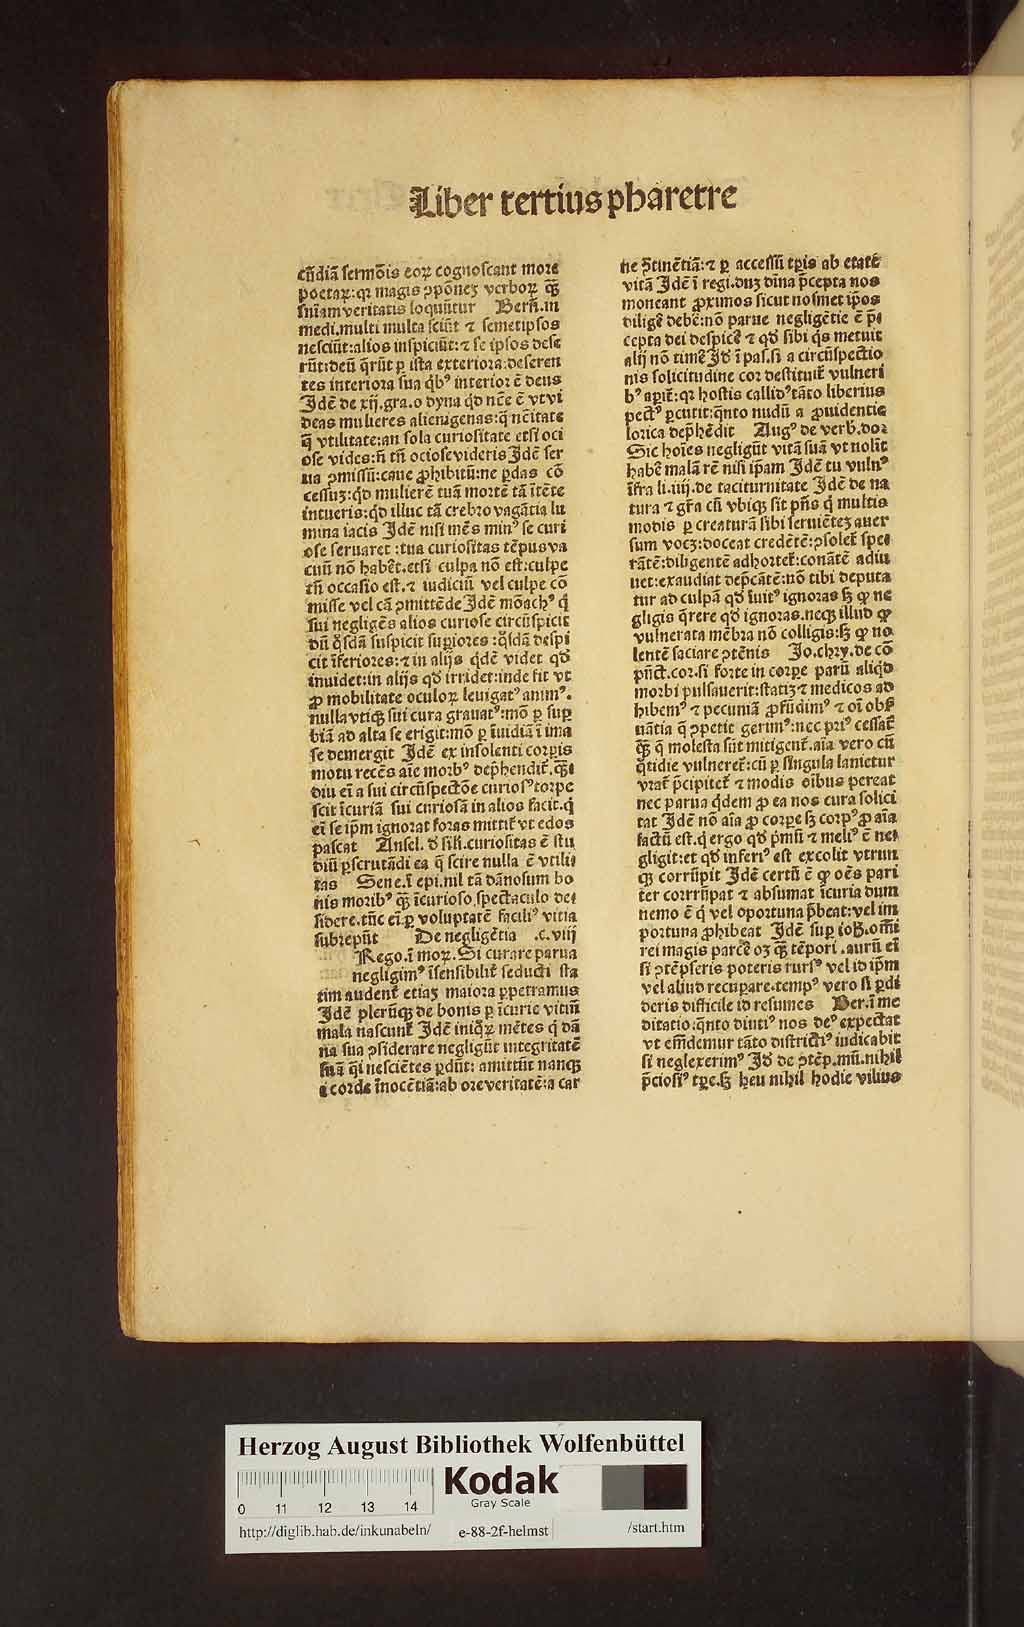 Liber tertius pharetre
cēdiā sermōis eoꝝ cognoscant more
poetaꝝ: qꝛ magis ꝓpōneʒ verboꝝ qͣꝫ
snīam veritatis loquūtur Bern̄. in
medi. multi multa sciūt ⁊ semetipsos
nesciūt: alios inspiciūt: ⁊ se ipsos dese
rūt: deū q̄rūt ꝑ ista exteriora: deseren
tes interiora sua qͥbꝰ interior ē deus
Idē de xij. gra. o dyna qd̄ nēc̄ē ē vt vi
deas mulieres alienigenas: q̄ nēc̄itate
q̄ vtilitate: an sola curiositate etsi oci
ose vides: n̄ tn̄ ociose videris Idē ser
ua ꝓmissū: caue ꝓhibitū: ne ꝑdas cō
cessuꝫ: qd̄ mulierē tuā mortē tā ītēte
intueris: qd̄ illuc tā crebro vagātia lu
mina iacis Idē nisi mēs minꝰ se curi
ose seruaret: tua curiositas tēpus va
cuū nō habēt. etsi culpa nō est: culpe
tn̄ occasio est. ⁊ iudiciū vel culpe cō
misse vel cā ꝯmittēde Idē mōachꝰ qͥ
sui negligēs alios curiose circūspicit
dū qͦsdā suspicit suꝑiores: qͦsdā despi
cit īferiores: ⁊ in alijs qͥdē videt qd̄
inuidet: in alijs qd̄ irridet: inde fit vt
ꝓ mobilitate oculoꝝ leuigatꝰ animꝰ.
nulla vtiqꝫ sui cura grauatꝰ: mō ꝑ suꝑ
biā ad alta se erigit: mō ꝑ īuidiā ī ima
se demergit Idē ex insolenti corꝑis
motu recēs aīe morbꝰ dep̄hendit̄. qͣꝫ
diu eī a sui circūspectōe curiosꝰ torpe
scit īcuriā sui curiosā in alios facit. q̄
eī se ip̄m ignorat foras mittit̄ vt edos
pascat Ansel. d̄ sili. curiositas ē stu
diū ꝑscrutādi ea q̄ scire nulla ē vtili
tas Sene. ī epi. nil tā dānosum bo
nis moribꝰ qͣꝫ īcurioso spectaculo de
sidere. tūc eī ꝑ voluptatē faciliꝰ vitia
subrepūt De negligētia .c. viij
Rego. ī moꝝ. Si curare parua
negligimꝰ īsensibilit̄ seducti sta
tim audent̄ etiaꝫ maiora ꝑpetramus
Idē plerūqꝫ de bonis ꝑ īcurie vitiū
mala nascunt̄ Idē iniqͦꝝ mētes q̄ dā
na sua ꝯsiderare negligūt integritatē
suā qͣi nesciētes ꝑdūt: amittūt nanqꝫ
a corde īnocētiā: ab ore veritatē: a car
ne ꝯtinētiā: ⁊ ꝑ accessū tꝑis ab etatē
vitā Idē ī regi. duꝫ dīna p̄cepta nos
moneant ꝓximos sicut nosmet ip̄os
diligē debē: nō parue negligētie ē p̄
cepta dei despicē ⁊ qd̄ sibi qͥs metuit
alij nō timē Id̄ ī pas. si a circūspectio
nis solicitudine cor destituit̄ vulneri
bꝰ aꝑit̄: qꝛ hostis callidꝰ tāto liberius
pectꝰ ꝑcutit: qͣnto nudū a ꝓuidentie
lorica dep̄hēdit Augꝰ de verb. doꝛ
Sic hoīes negligūt vitā suā vt nolīt
habē malā rē nisi ip̄am Idē tu vulnꝰ
īfra li. iiij. de taciturnitate Idē de na
tura ⁊ gr̄a cū vbiqꝫ sit p̄ns qͥ multis
modis ꝑ creaturā sibi seruiēteꝫ auer
sum vocꝫ: doceat credētē: ꝯsolet̄ spe
rātē: diligentē adhortet̄: conātē adiu
uet: exaudiat dep̄cātē: nō tibi deputa
tur ad culpā qd̄ īuitꝰ ignoras sꝫ ꝙ ne
gligis q̄rere qd̄ ignoras. neqꝫ illud ꝙ
vulnerata mēbra nō colligis: sꝫ ꝙ no
lentē saciare ꝯtēnis Jo. chry. de cō
pūct. cor. si forte in corꝑe parū aliqd̄
morbi pulsauerit: statiꝫ ⁊ medicos ad
hibemꝰ ⁊ pecuniā ꝓfūdimꝰ ⁊ oī obs̄
uātia q̄ ꝯpetit gerimꝰ: nec priꝰ cessat̄
qͣꝫ q̄ molesta sūt mitigent̄. aīa vero cū
qͦtidie vulneret̄: cū ꝑ singula lanietur
vrat̄ p̄cipitet̄ ⁊ modis oībus pereat
nec parua qͥdem ꝓ ea nos cura solici
tat Idē nō aīa ꝓ corꝑe sꝫ corpꝰ ꝓ aīa
factū est. qͥ ergo qd̄ p̄mū ⁊ meliꝰ ē ne
gligit: et qd̄ inferiꝰ est excolit vtrun
qꝫ corrūpit Idē certū ē ꝙ oēs pari
ter corrrūpat ⁊ absumat īcuria dum
nemo ē qͥ vel oportuna p̄beat: vel im
portuna ꝓhibeat Idē suꝑ ioh̄. om̄i
rei magis parcē oꝫ qͣꝫ tēpori. aurū eī
si ꝯtēpseris poteris rursꝰ vel id ip̄m
vel aliud recuꝑare. tempꝰ vero si ꝑdi
deris difficile id resumes Ber. ī me
ditatio: qͣnto diutiꝰ nos deꝰ expectat
vt emēdemur tāto districtiꝰ iudicabit
si neglexerimꝰ Id̄ de ꝯtēp. mū. nihil
p̄ciosiꝰ tꝑe. sꝫ heu nihil hodie vilius
Herzog August Bibliothek Wolfenbüttel
Kodak
Gray Scale
0 11 12 13 14
http://diglib.hab.de/inkunabeln/ e-88-2f-helmst /start.htm